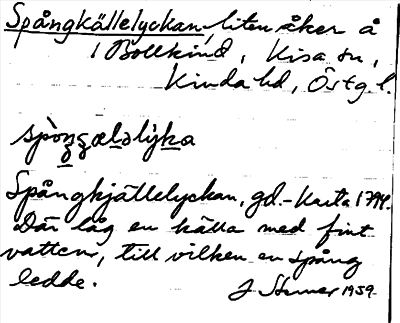 Spångkällelyckan, liten åker å
1 Bollkind, Kisa sn,
Kinda hd, Östg. l.
Spångkjällelyckan, gd.- Karta 1794.
Där låg en källa med fint
vatten, till vilken en spång
ledde.
1959